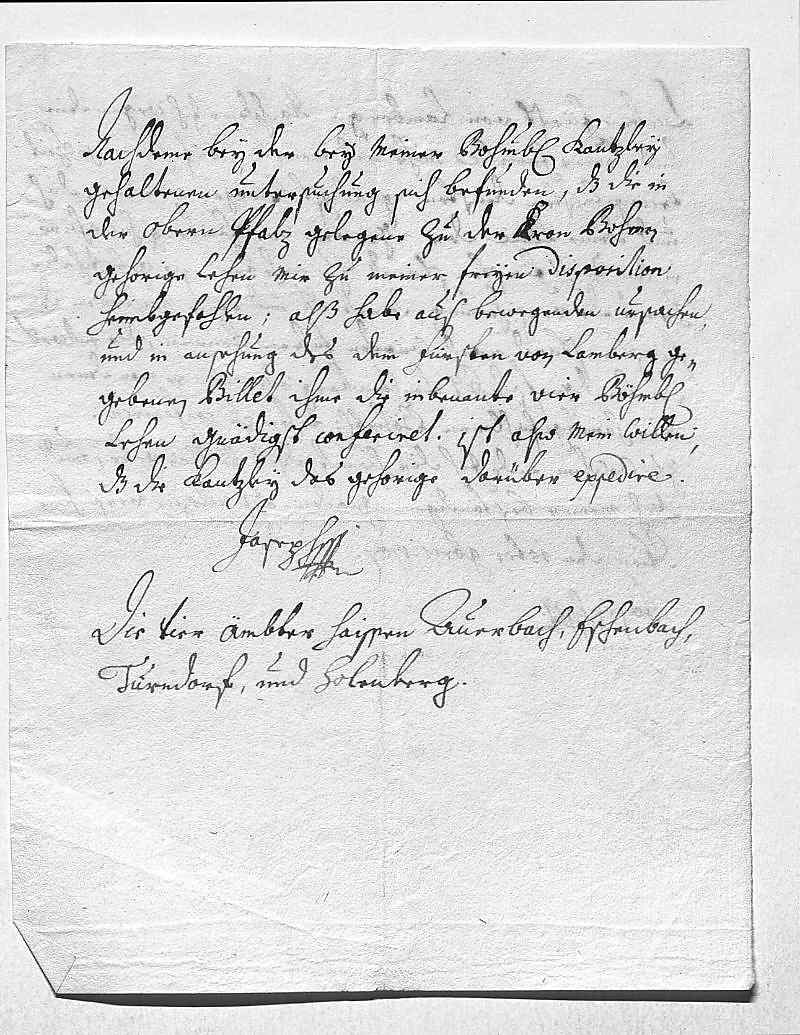 Nachdeme bey der bey Meiner Böhmb. Kantzley
gehaltenen untersuchung sich befunden, dß die in
der Obern Pfalz gelegene zu der Kron Böhmen
gehörige Lehen mir zu meiner freyen Disposition
heimbgefahlen; alß habe auß bewegenden ursachen,
und in ansehung des dem fürsten von Lamberg ge-
gebenen Billet ihme die inbenante vier Böhmb.
Lehen gnädigst conferiret. ist also Mein Willen,
dß die Kantzley das gehörige darüber expedire.
Joseph
Die vier ämbter haissen Auerbach, Eschenbach,
Turndorf, und Holenberg.